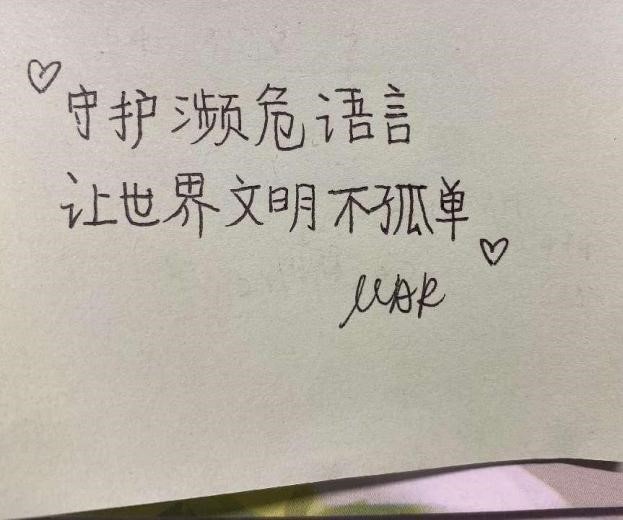 守护濒危语言
让世界文明不孤单
MAR